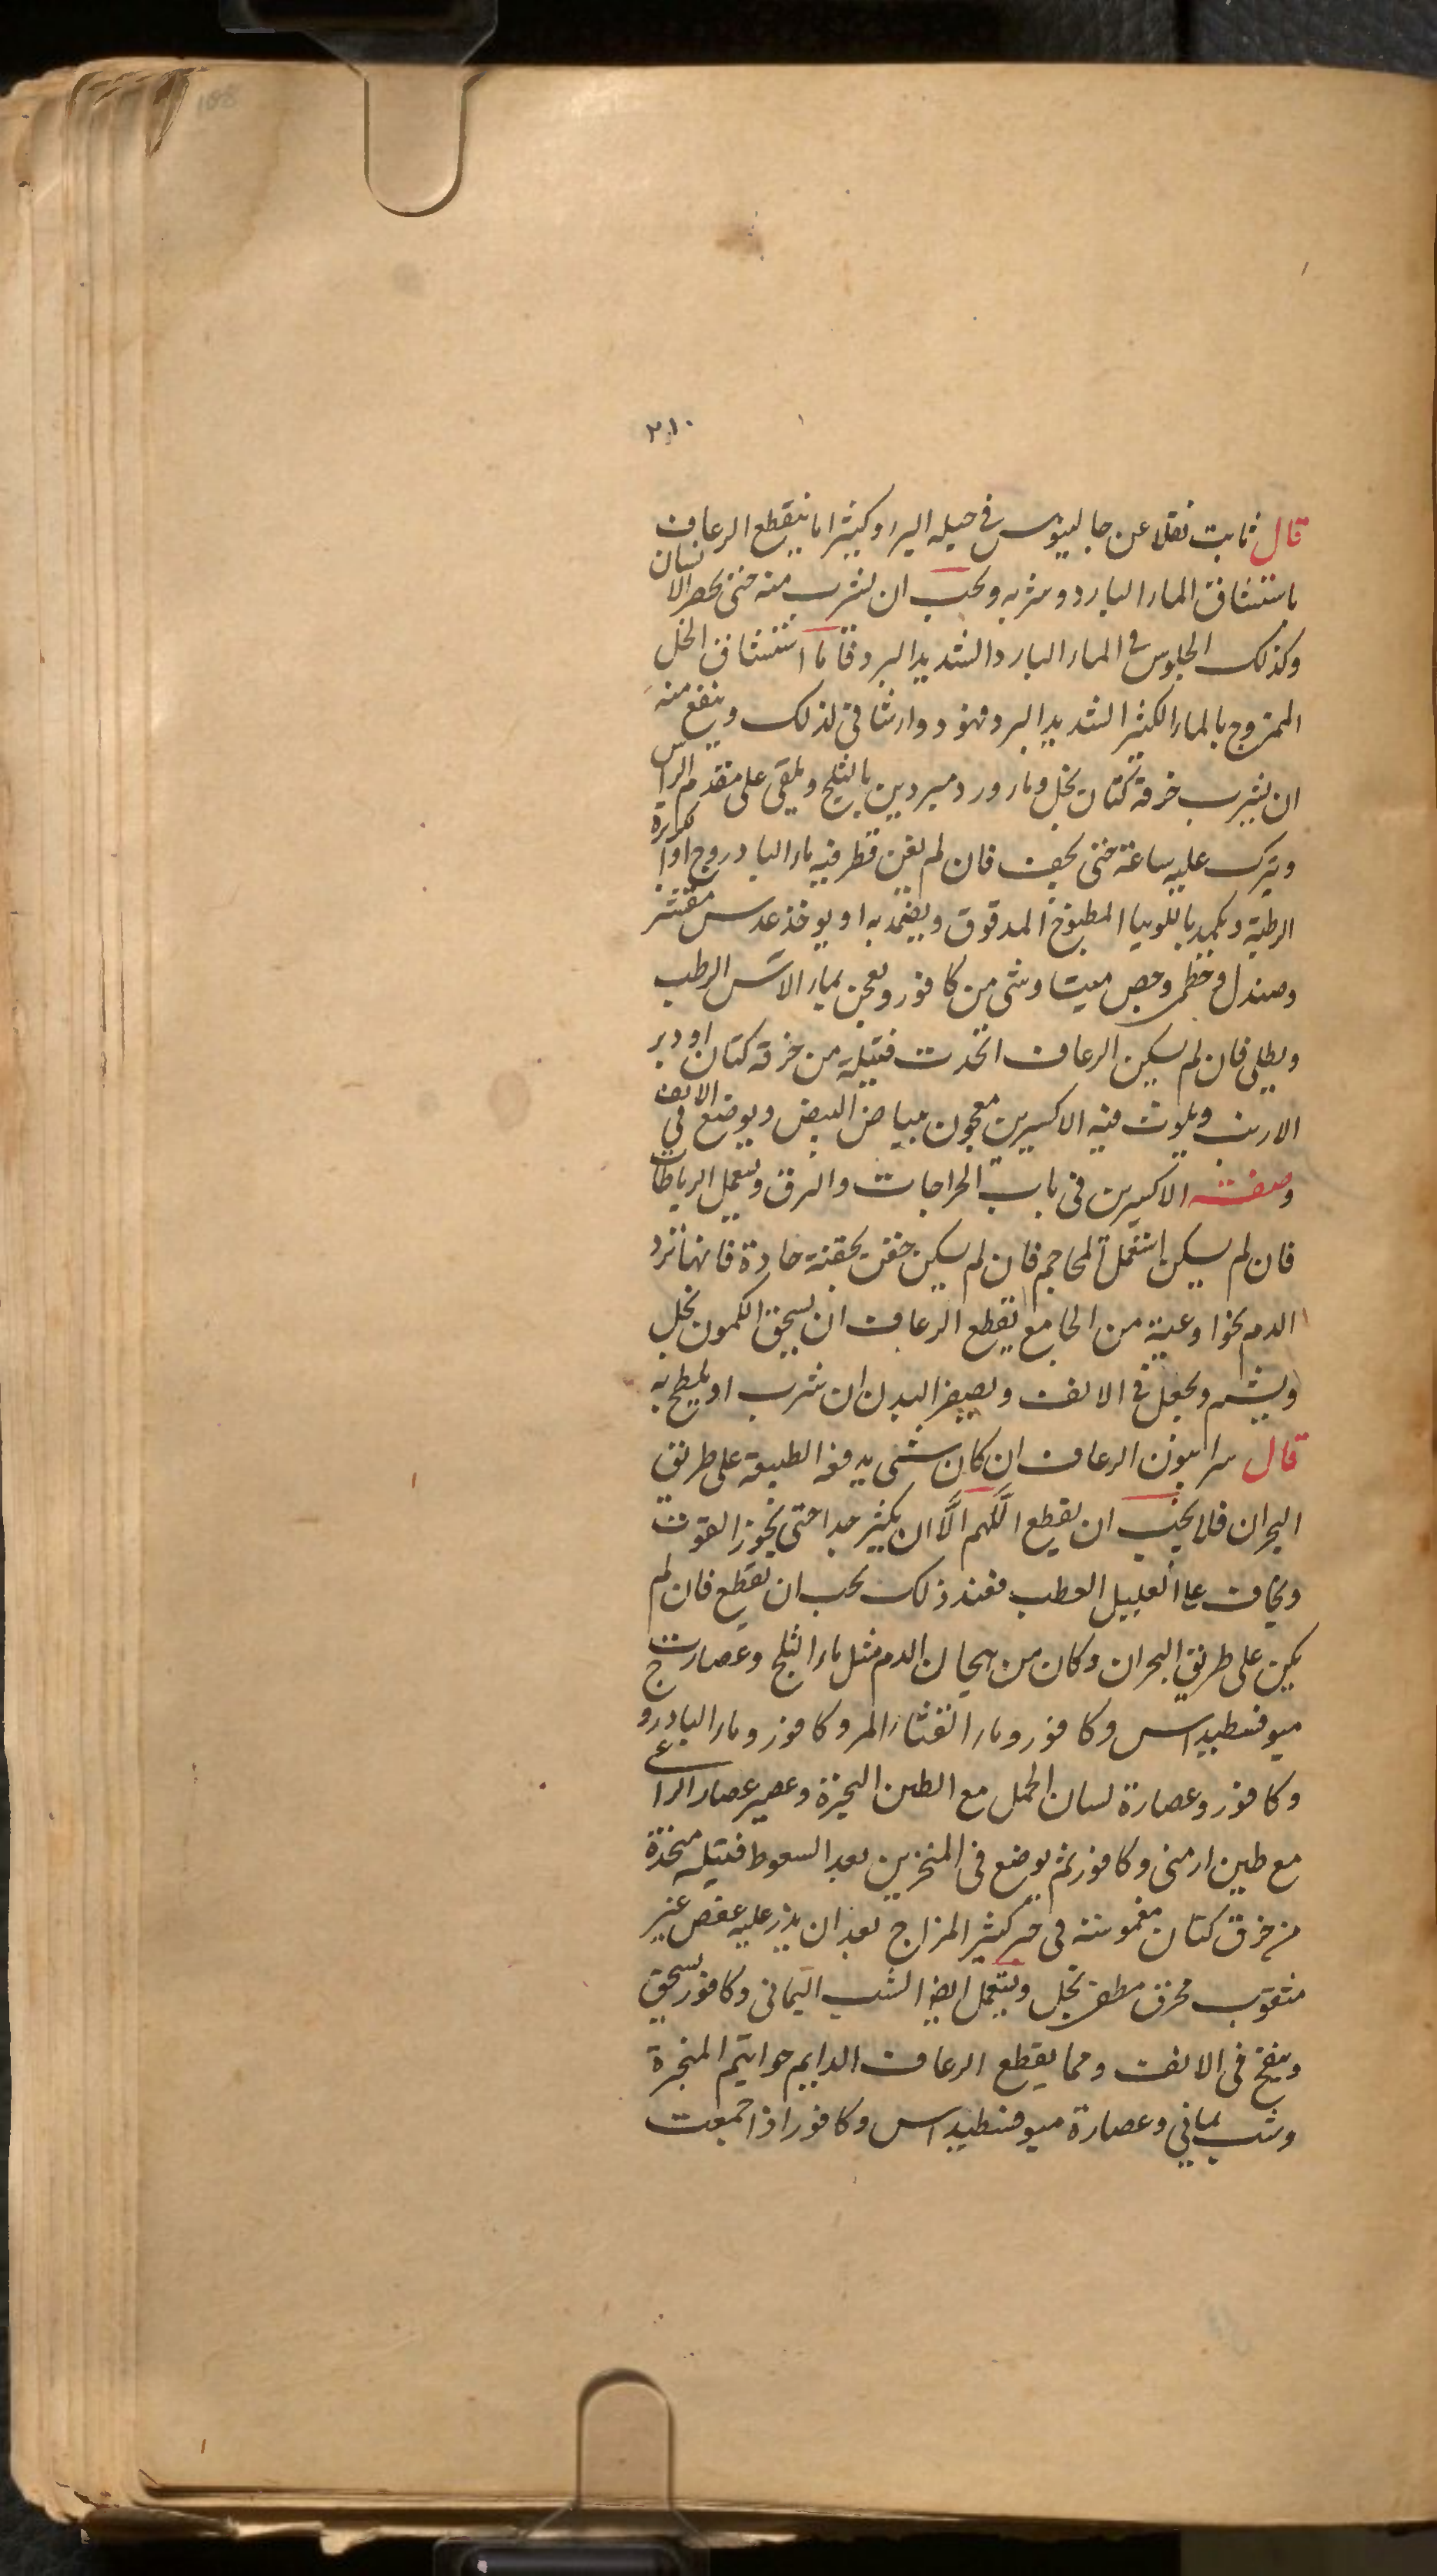 188
٢١٠
قال ثابت نقلا عن جالينوس في حيله البرا وكثيرا ما ينقطع الرعاف
باستنشاق الماء البارد وشربه ويجب ان يشرب منه حتى يخصر الانسان
وكذلك الجلوس في الماء البارد الشديد البرد فاما استنشاق الخل
الممزوج بالماء الكثير الشديد البرد فهو دواء شافى لذلك وينفع منه
ان يشرب خرقة كتان بخل وماء ورد مبردين بالثلج ويلقى على مقدم الراس
ويترك عليه ساعة حتى يجف فان لم يغن قطر فيه ماء البادروج او
الرطبة ويكمد باللوبيا المطبوخ المدقوق ويضمد به او يوخذ عدس مقشر
وصندل وخطمى وجص ميت وشى من كافور ويعجن بماء الاس الرطب
ويطلى فان لم يسكن الرعاف اتخدت فتيلة من خرقة كتان او وبر
الارنب ويلوث فيه الاكسيرين معجون ببياض البيض ويوضع في الانف
وصفت الاكسيرين فى باب الجراجات والحرق ويستعمل الرباطات
فان لم يسكن استعمل المحاجم فان لم يسكن حقن بحقنة حادة فانها ترد
الدم نحو اوعية من الجامع يقطع الرعاف ان يسحق الكمون بخل
ويشم ويجعل فى الانف ويصفر البدن ان شرب او يلطخ به
قال سرابيون الرعاف ان كان شى يدفعه الطبيعة على طريق
البحران فلا يجب ان يقطع اللهم الا ان يكثر جدا حتى يجوز القوت
ويخاف على العليل العطب فعند ذلك يجب ان يقطع فان لم
يكن على طريق البحران وكان من هيجان الدم مثل ماء الثلج وعصارت
هيوفسطيداس وكافور وماء القثاء المر وكافور وماء البادروج
وكافور وعصارة لسان الحمل مع الطين البحيرة وعصير عصا الراعى
مع طين ارمنى وكافور ثم يوضع فى المنخرين بعد السعوط فتيله متخذة
من خرق كتان مغموسة فى خبر كثير المزاج بعد ان يذر عليه عفص غير
مثقوب محرق مطفى بخل ويستعمل ايضا الشب اليمانى وكافور يسحق
وينفخ فى الانف ومما يقطع الرعاف الدايم خواتيم البحيرة
وشب يمانى وعصارة هيوفسطيداس وكافور اذا جمعت